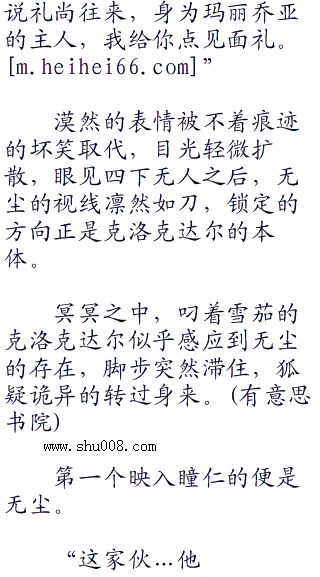 说礼尚往来，身为玛丽乔亚
的主人，我给你点见面礼。
[m.heihei66.com]”
漠然的表情被不着痕迹
的坏笑取代，目光轻微扩
散，眼见四下无人之后，无
尘的视线凛然如刀，锁定的
方向正是克洛克达尔的本
体。
冥冥之中，叼着雪茄的
克洛克达尔似乎感应到无尘
的存在，脚步突然滞住，狐
疑诡异的转过身来。(有意思
书院)
www.shu008.com
第一个映入瞳仁的便是
无尘。
“这家伙…他